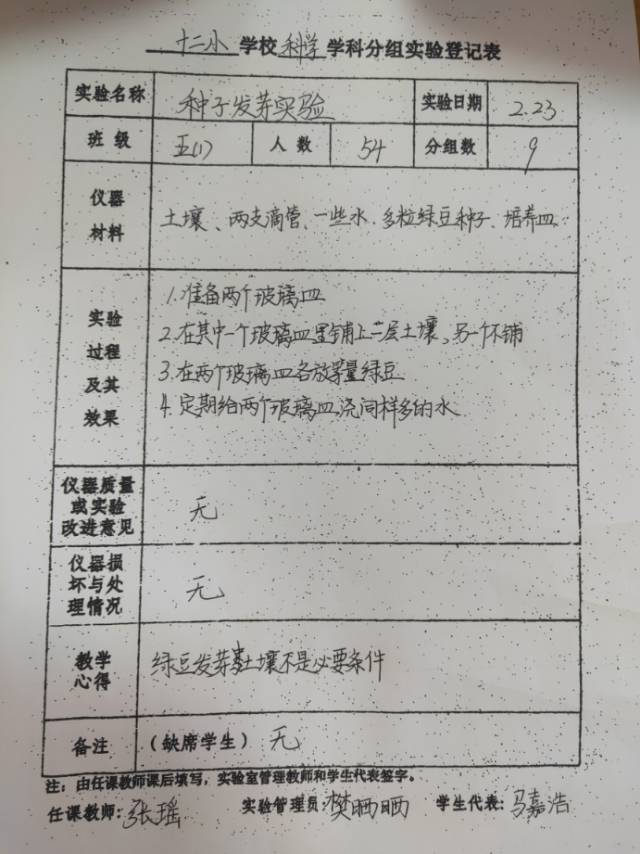 十二小学校科学学科分组实验登记表
实验名称 种子发芽实验 实验日期 2.23
班级 五(1) 人数 54 分组数 9
仪器
材料
土壤、两支滴管、一些水、多粒绿豆种子、培养皿
实验
过程
及其
效果
1.准备两个玻璃皿
2.在其中一个玻璃皿里铺上一层土壤,另一个不铺
3.在两个玻璃皿各放等量绿豆
4.定期给两个玻璃皿浇同样多的水
仪器质量
或实验
改进意见
无
仪器损
坏与处
理情况
无
教学
心得
绿豆发芽土壤不是必要条件
备注 (缺席学生) 无
注:由任课教师课后填写,实验室管理教师和学生代表签字。
任课教师:张瑶 实验管理员:樊晒晒 学生代表:马嘉浩